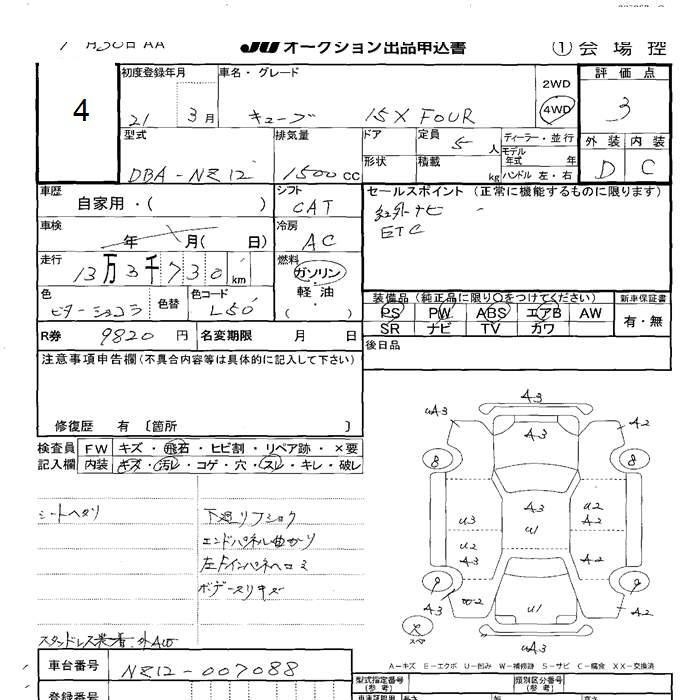 月30日 AA JU オークション出品申込書 ① 会場控
4
初度登録年月 車名・グレード 2WD 評価点
21 3月 キューブ 15X FOUR 4WD 3
型式 排気量 ドア 定員 5人 ディーラー・並行 外装 内装
モデル年式 年
DBA-NZ12 1500CC 形状 積載 kg ハンドル 左・右 D C
車歴 シフト セールスポイント (正常に機能するものに限ります)
自家用・( ) CAT 社外ナビ
車検 冷房 ETC
年 月( 日) AC
走行 燃料
13万3千730km ガソリン・軽油・( )
色 色替 色コード 装備品 (純正品に限り○をつけてください) 新車保証書
ビターショコラ L50 PS PW ABS エアB AW 有・無
SR ナビ TV カワ
R券 9820円 名変期限 月 日 後日品
注意事項申告欄 (不具合内容等は具体的に記入して下さい)
修復歴 有 〔箇所 〕
検査員 FW キズ・飛石・ヒビ割・リペア跡・×要
記入欄 内装 キズ・汚レ・コゲ・穴・スレ・キレ・破レ
シートヘタリ 下廻リフショク
エンドパネル曲がり
左Fインパネヘコミ
ボデースリキズ
スタッドレス装着.外AW
A3
uA3 A3 A2
8 8
A3 u2
u3 u1 A2
u2 A2
A3
9 9
A3 W2 u1 A2
× スペア uA3
A－キズ E－エクボ U－凹み W－補修跡 S－サビ C－腐食 XX－交換済
車台番号 NZ12-007088 型式指定番号 (参考) 類別区分番号 (参考)
登録番号